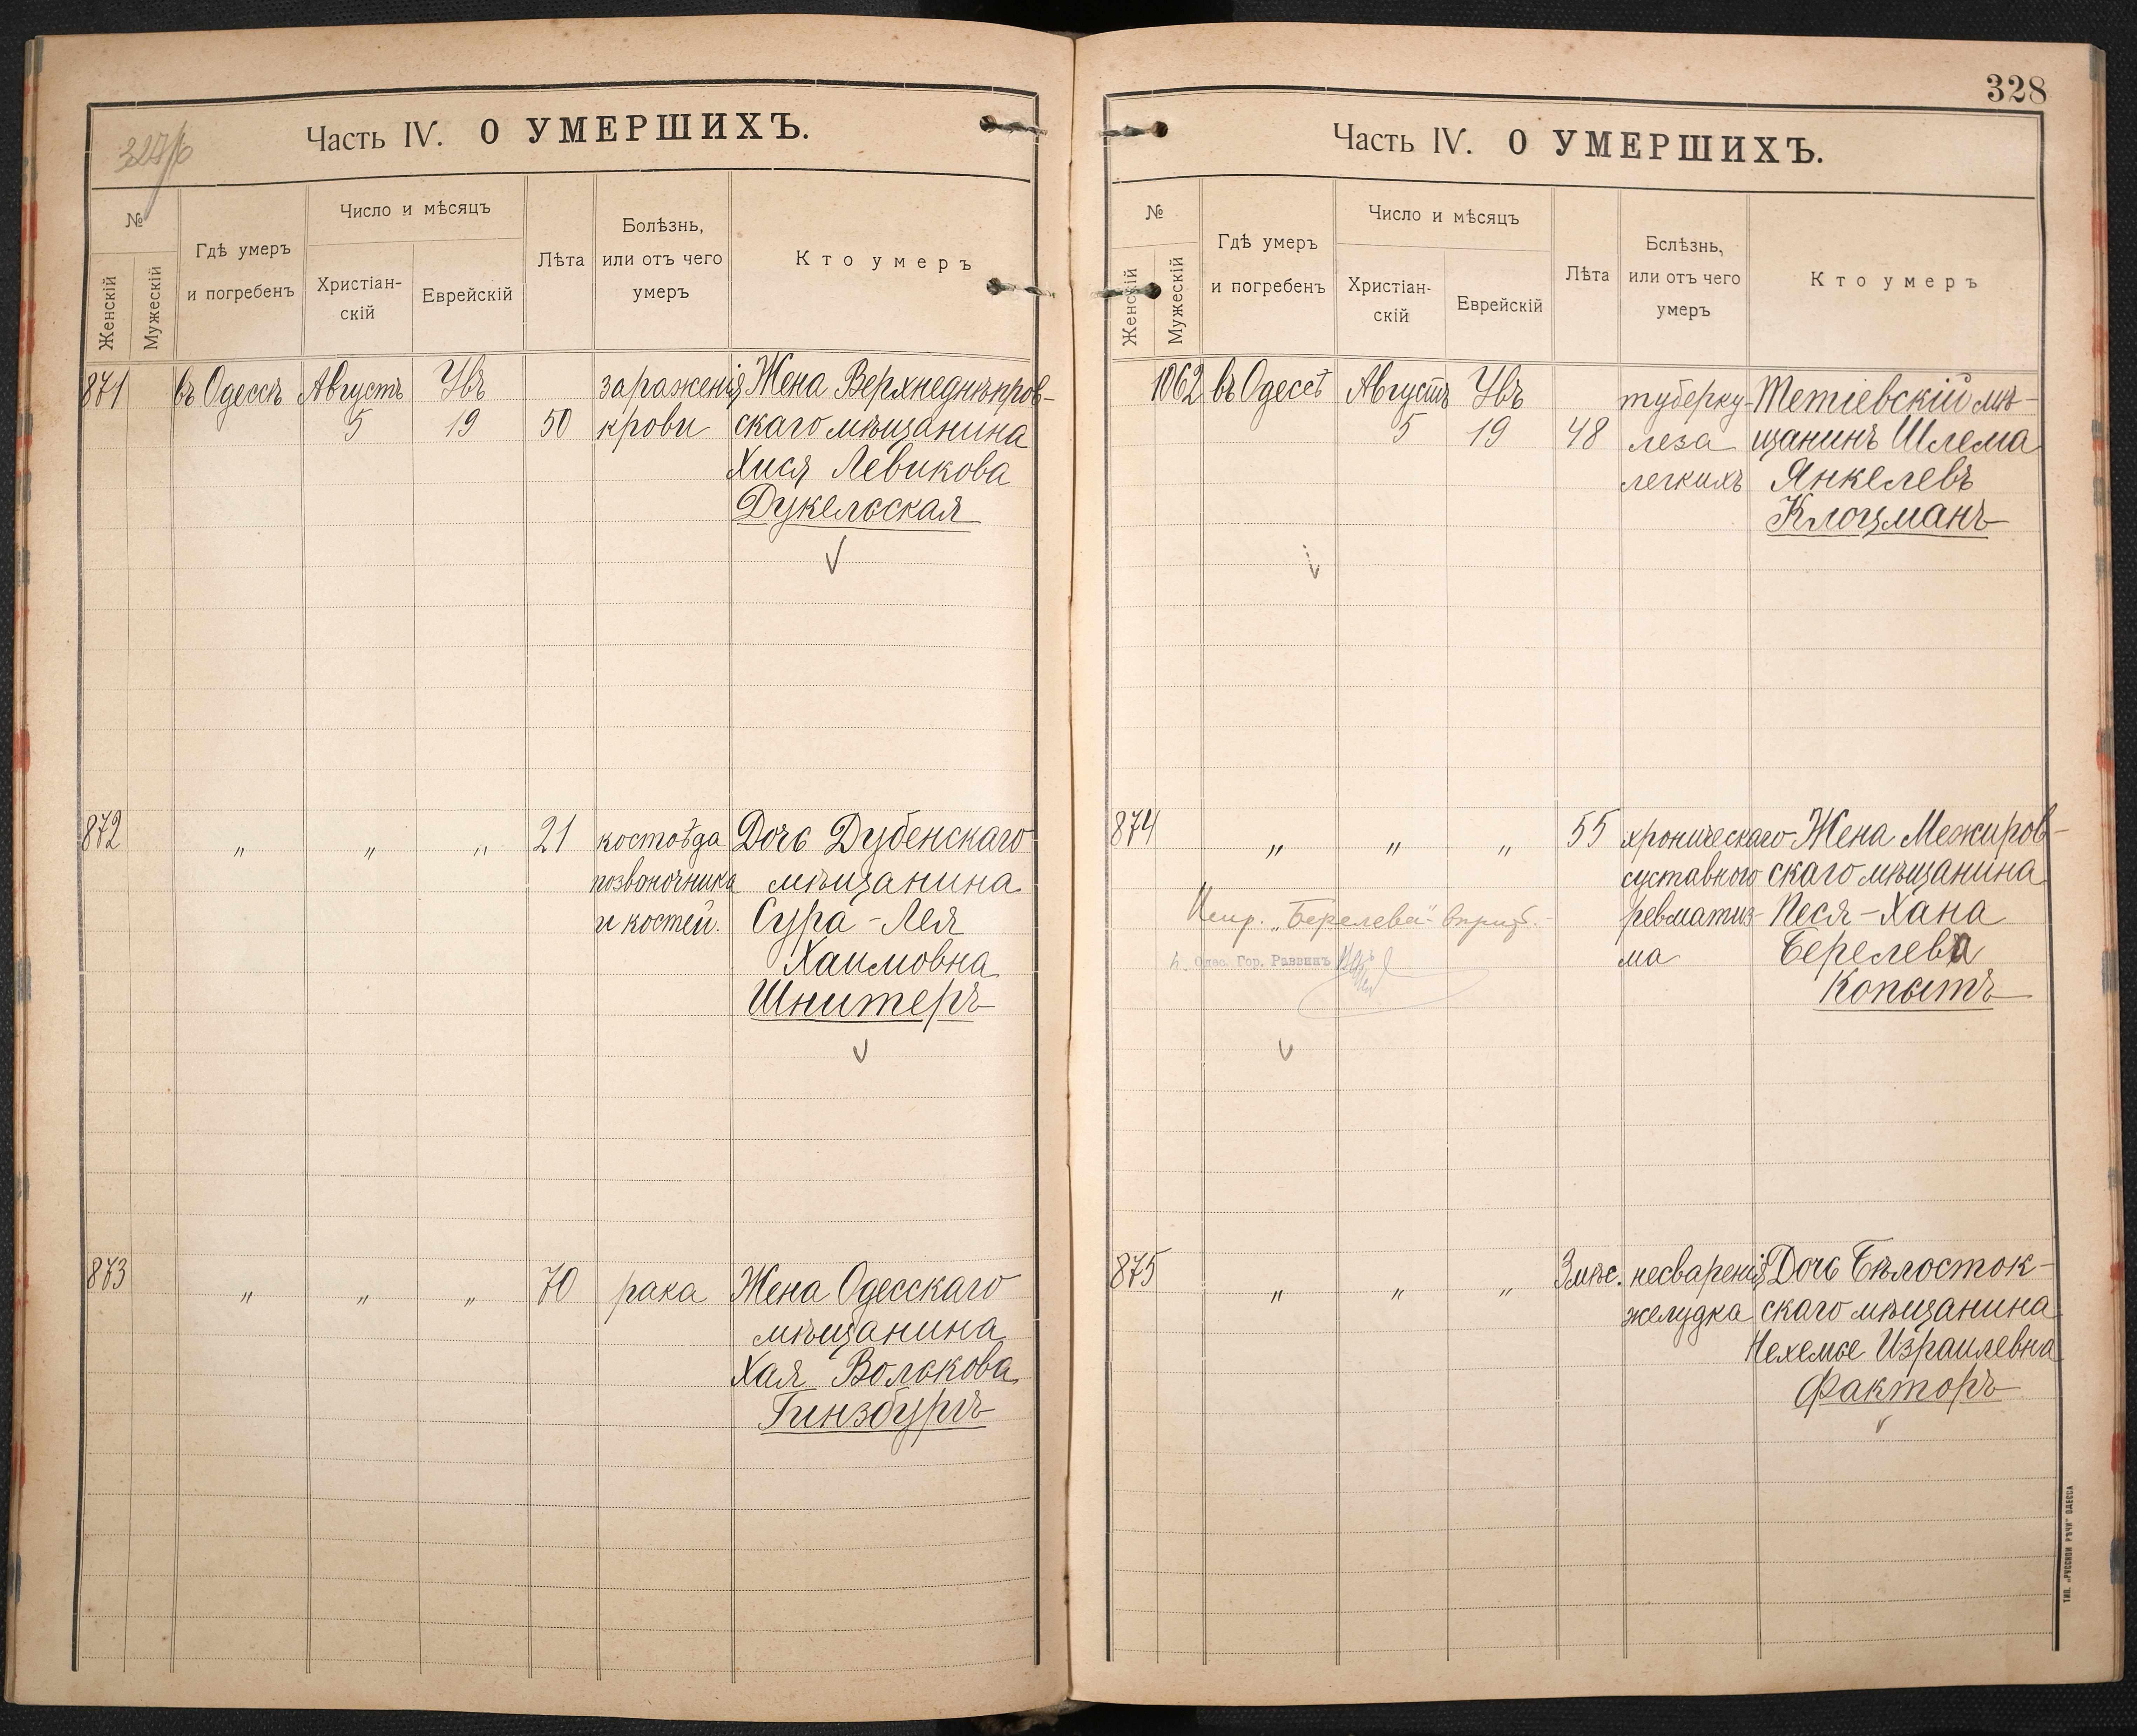 327/б
Часть IV. О УМЕРШИХЪ.
№
Женскій
Мужескій
Гдѣ умеръ
и погребенъ
Число и мѣсяцъ
Христіан-
скій
Еврейскій
Лѣта
Болѣзнь,
или отъ чего
умеръ
Кто умеръ
871 въ Одессѣ Августъ Увъ зараженія Жена Верхнеднѣпров-
5 19 50 крови скаго мѣщанина
Хися Левикова
Дукельская
872 " " " 21 костоѣда Дочь Дубенскаго
позвоночника мѣщанина
и костей. Сура-Лея
Хаимовна
Шнитеръ
873 " " " 70 рака Жена Одесскаго
мѣщанина
Хая Волькова
Гинзбургъ
328
Часть IV. О УМЕРШИХЪ.
№
Женскій
Мужескій
Гдѣ умеръ
и погребенъ
Число и мѣсяцъ
Христіан-
скій
Еврейскій
Лѣта
Бслѣзнь,
или отъ чего
умеръ
Кто умеръ
1062 въ Одессѣ Августъ Увъ туберку- Тетіевскій мѣ-
5 19 48 леза щанинъ Шлема
легкихъ Янкелевъ
Клоцманъ
874 " " " 55 хроническаго Жена Межиров-
суставного скаго мѣщанина
ревматиз- Песя-Хана
"Берелева"
ма Берелева
Одес. Гор. Раввинъ
Копытъ
875 " " " 3 мѣс. несваренія Дочь Бѣлосток-
желудка скаго мѣщанина
Нехемье Израилевна
Факторъ
ТИП. „РУССКОЙ РѢЧИ" ОДЕССА